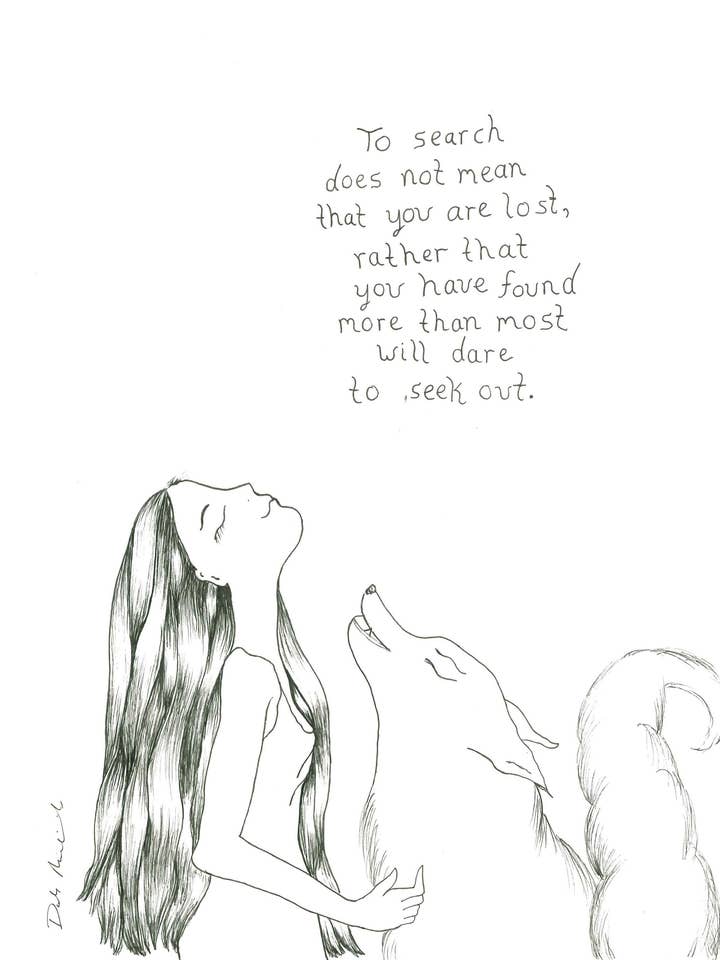 To search
does not mean
that you are lost,
rather that
you have found
more than most
will dare
to seek out.